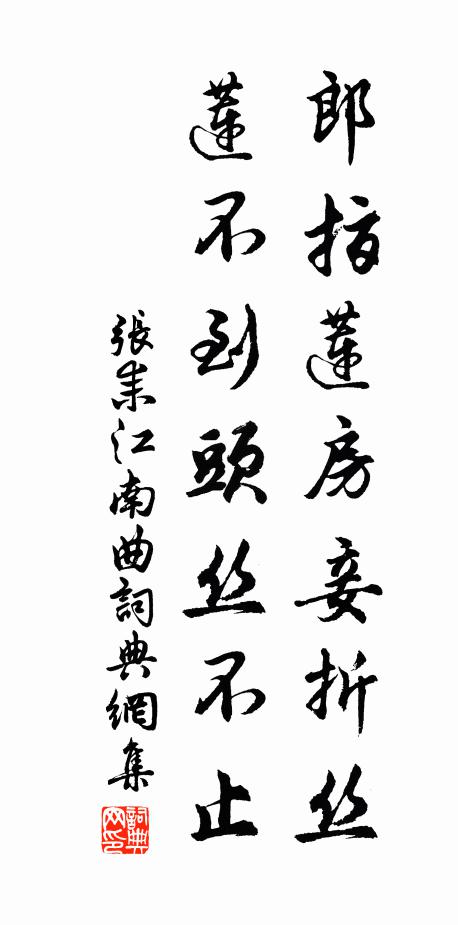 郎指蓮房妾折丝
蓮不到頭丝不止
張耒江南曲詞典網集
詞典网印